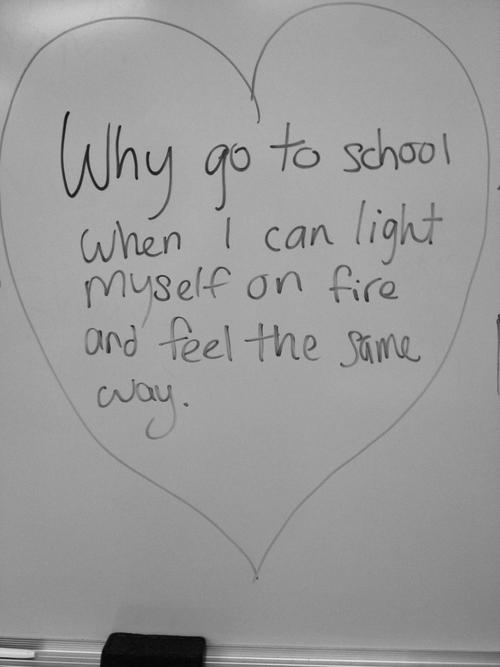 Why go to school
when I can light
myself on fire
and feel the same
way.